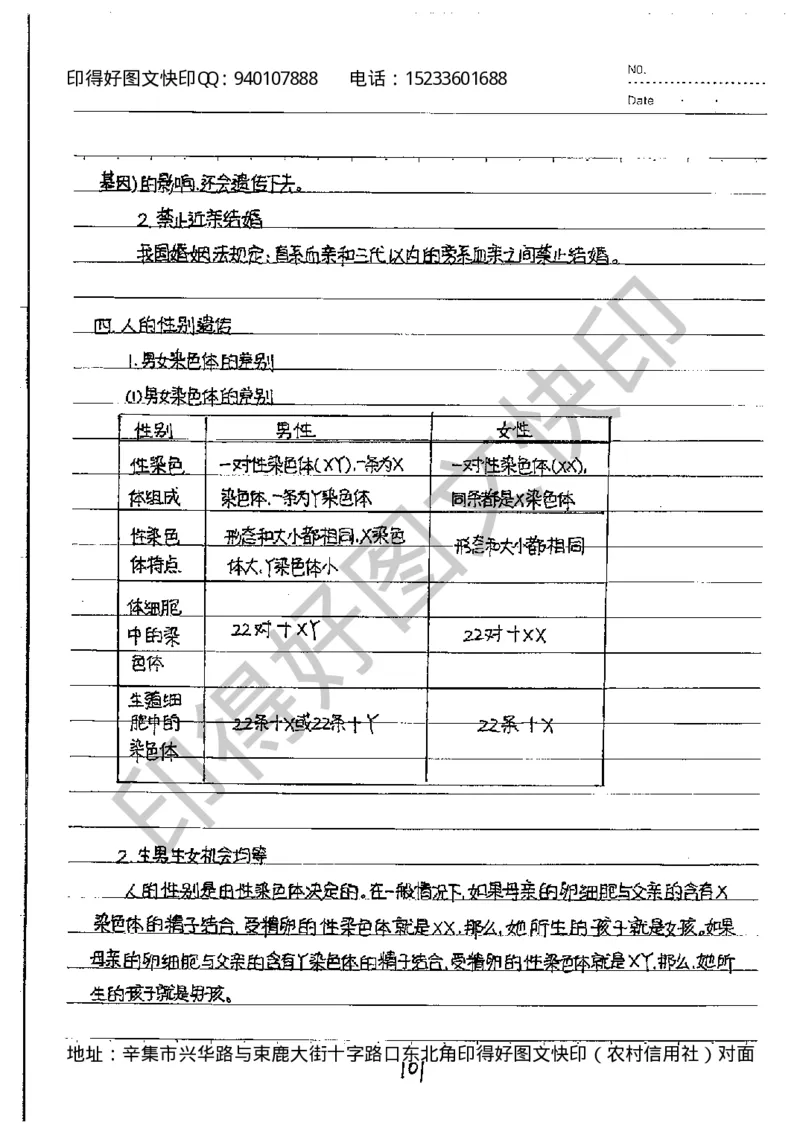 印得好图文快印QQ：940107888 电话：15233601688
NO.
Date
基因)的影响,还会遗传下去。
2. 禁止近亲结婚
我国婚姻法规定：直系血亲和三代以内的旁系血亲之间禁止结婚。
四. 人的性别遗传
1. 男女染色体的差别
(1)男女染色体的差别
性别 男性 女性
性染色 一对性染色体(XY),一条为X 一对性染色体(XX),
体组成 染色体,一条为Y染色体 同条都是X染色体
性染色 形态和大小都相同,X染色 形态和大小都相同
体特点 体大,Y染色体小
体细胞
中的染 22对+XY 22对+XX
色体
生殖细
胞中的 22条+X或22条+Y 22条+X
染色体
2. 生男生女机会均等
人的性别是由性染色体决定的。在一般情况下,如果母亲的卵细胞与父亲的含有X
染色体的精子结合,受精卵的性染色体就是XX,那么,她所生的孩子就是女孩。如果
母亲的卵细胞与父亲的含有Y染色体的精子结合,受精卵的性染色体就是XY,那么,她所
生的孩子就是男孩。
地址：辛集市兴华路与束鹿大街十字路口东北角印得好图文快印（农村信用社）对面
101
印得好图文快印